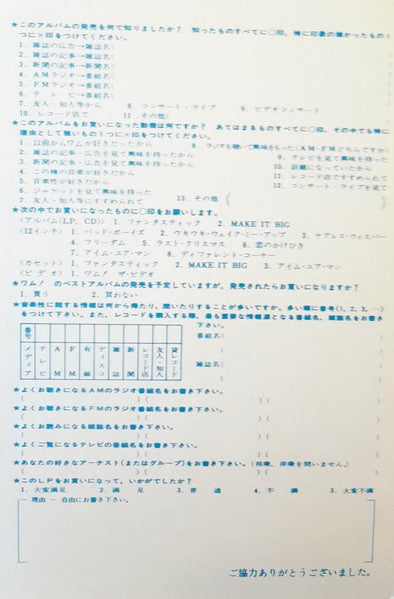 ★このアルバムの発売を何で知りましたか？ 知ったものすべてに○印、特に印象の強かったもの1
つに×印をつけてください。
1. 雑誌の広告→雑誌名(
2. 雑誌の記事→雑誌名(
3. 新聞の記事→新聞名(
4. AMラジオ→番組名(
5. FMラジオ→番組名(
6. テ レ ビ→番組名(
7. 友人・知人等から 8. コンサート・ライブ 9. ビデオコンサート
10. レコード店で 11. その他( )
★このアルバムをお買いになった動機は何ですか？ あてはまるものすべてに○印、その中でも特に
理由として強いもの1つに×印をつけてください。
1. 以前からワム が好きだったから 8. ラジオを聴いて興味をもった(AM・FMどちらですか)
2. 雑誌の記事・広告を見て興味を持ったから 9. テレビを見て興味を持った
3. 新聞の記事・広告を見て興味を持ったから 10. 話題になっていたから
4. この種の音楽が好きだから 11. レコード店ですすめられて
5. 音楽性が好きだから 12. コンサート・ライブを見て
6. ジャケットを見て興味を持ったから
7. 友人・知人等にすすめられて 13. その他 ( )
★次の中でお買いになったものに○印をお願いします。
〈アルバム(LP, CD)〉 1. ファンタスティック 2. MAKE IT BIG
〈12インチ〉 1. バッド・ボーイズ 2. ウキウキ・ウェイク・ミー・アップ 3. ケアレス・ウィスパー
4. フリーダム 5. ラスト・クリスマス 6. 恋のかけひき
7. アイム・ユア・マン 8. ディファレント・コーナー
〈カセット〉 1. ファンタスティック 2. MAKE IT BIG 3. アイム・ユア・マン
〈ビ デ オ〉 1. ワム！ ザ・ビデオ
★ワム！ のベストアルバムの発売を予定していますが、発売されたらお買いになりますか？
1. 買う 2. 買わない
★音楽性に関する情報は何から得たり、聞いたりすることが多いですか。多い順に番号(1, 2, 3, …)
をつけて下さい。また、レコードを購入する際、最も重要な情報源となる番組名、雑誌名をお書き
下さい。
番号
メディア
テレビ
AM
FM
有線
ディスコ
雑誌
新聞
レコード店
友人・知人
貸レコード
番組名( )
雑誌名( )
★よくお聴きになるAMのラジオ番組名をお書き下さい。
( )( )( )
★よくお聴きになるFMのラジオ番組名をお書き下さい。
( )( )( )
★よくお読みになる雑誌名をお書き下さい。
( )( )( )
★よくご覧になるテレビの番組名をお書き下さい。
( )( )( )
★あなたの好きなアーチスト(またはグループ)をお書き下さい。(邦楽、洋楽を問いません)
( )( )( )
★このLPをお買いになって、いかがでしたか？
1. 大変満足 2. 満 足 3. 普 通 4. 不 満 5. 大変不満
理由 - 自由にお書き下さい。
ご協力ありがとうございました。